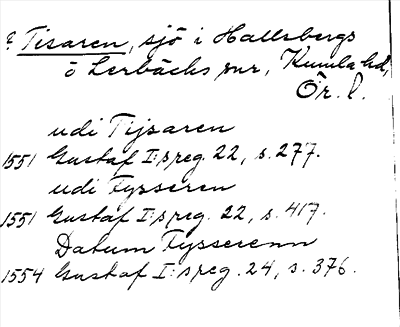 ? Tisaren, sjö i Hallsbergs
o Lerbäcks snr, Kumla hd,
Ör. l.
udi Tijsaren
1551 Gustaf I:s reg. 22, s. 277.
udi Tysseren
1551 Gustaf I:s reg. 22, s. 417.
Datum Tysserenn
1554 Gustaf I:s reg. 24, s. 376.